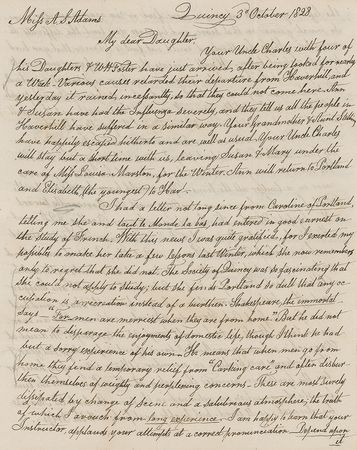 Miss A. S. Adams Quincy 3d October 1828
My dear Daughter,
Your Uncle Charles with four of
his Daughters & W. H. Foster have just arrived, after being looked for nearly
a Week. Various causes retarded their departure from Haverhill, and
yesterday it rained, incessantly, so that they could not come here. Ann
& Susan have had the Influenza severely, and they tell us all the people in
Haverhill have suffered in a similar way. Your Grandmother & Aunt
have happily escaped hitherto and are well as usual. Your Uncle Charles
will stay but a short time with us, leaving Susan & Mary under the
care of Miss Louisa Marston, for the Winter. Ann will return to Portland
and Elisabeth (the youngest) to
I had a letter not long since from Caroline of Portland,
telling me she and tout le Monde la bas had entered in good earnest on
the study of French. With this news I was quite gratified, for I exerted my
possibles to make her take a few lessons last Winter, which she now remembers
only to regret that she did not. The Society of Quincy was so fascinating that
she could not apply to study; but she finds Portland so dull that any oc-
cupation is a recreation instead of a burthen. Shakespeare, the immortal
says "For men are merriest when they are from home." But he did not
mean to disparage the enjoyments of domestic life, though I think he had
but a sorry experience of his own. He meant that when men go from
home they find a temporary relief from "Carking care, and often disbur-
then themselves of weighty and perplexing concerns. These are most surely
dissipated by change of scene and a salubrious atmosphere; the truth
of which I avouch from long experience. I am happy to learn that your
Instructor, applauds your attempts at a correct pronunciation. Depend upon
it